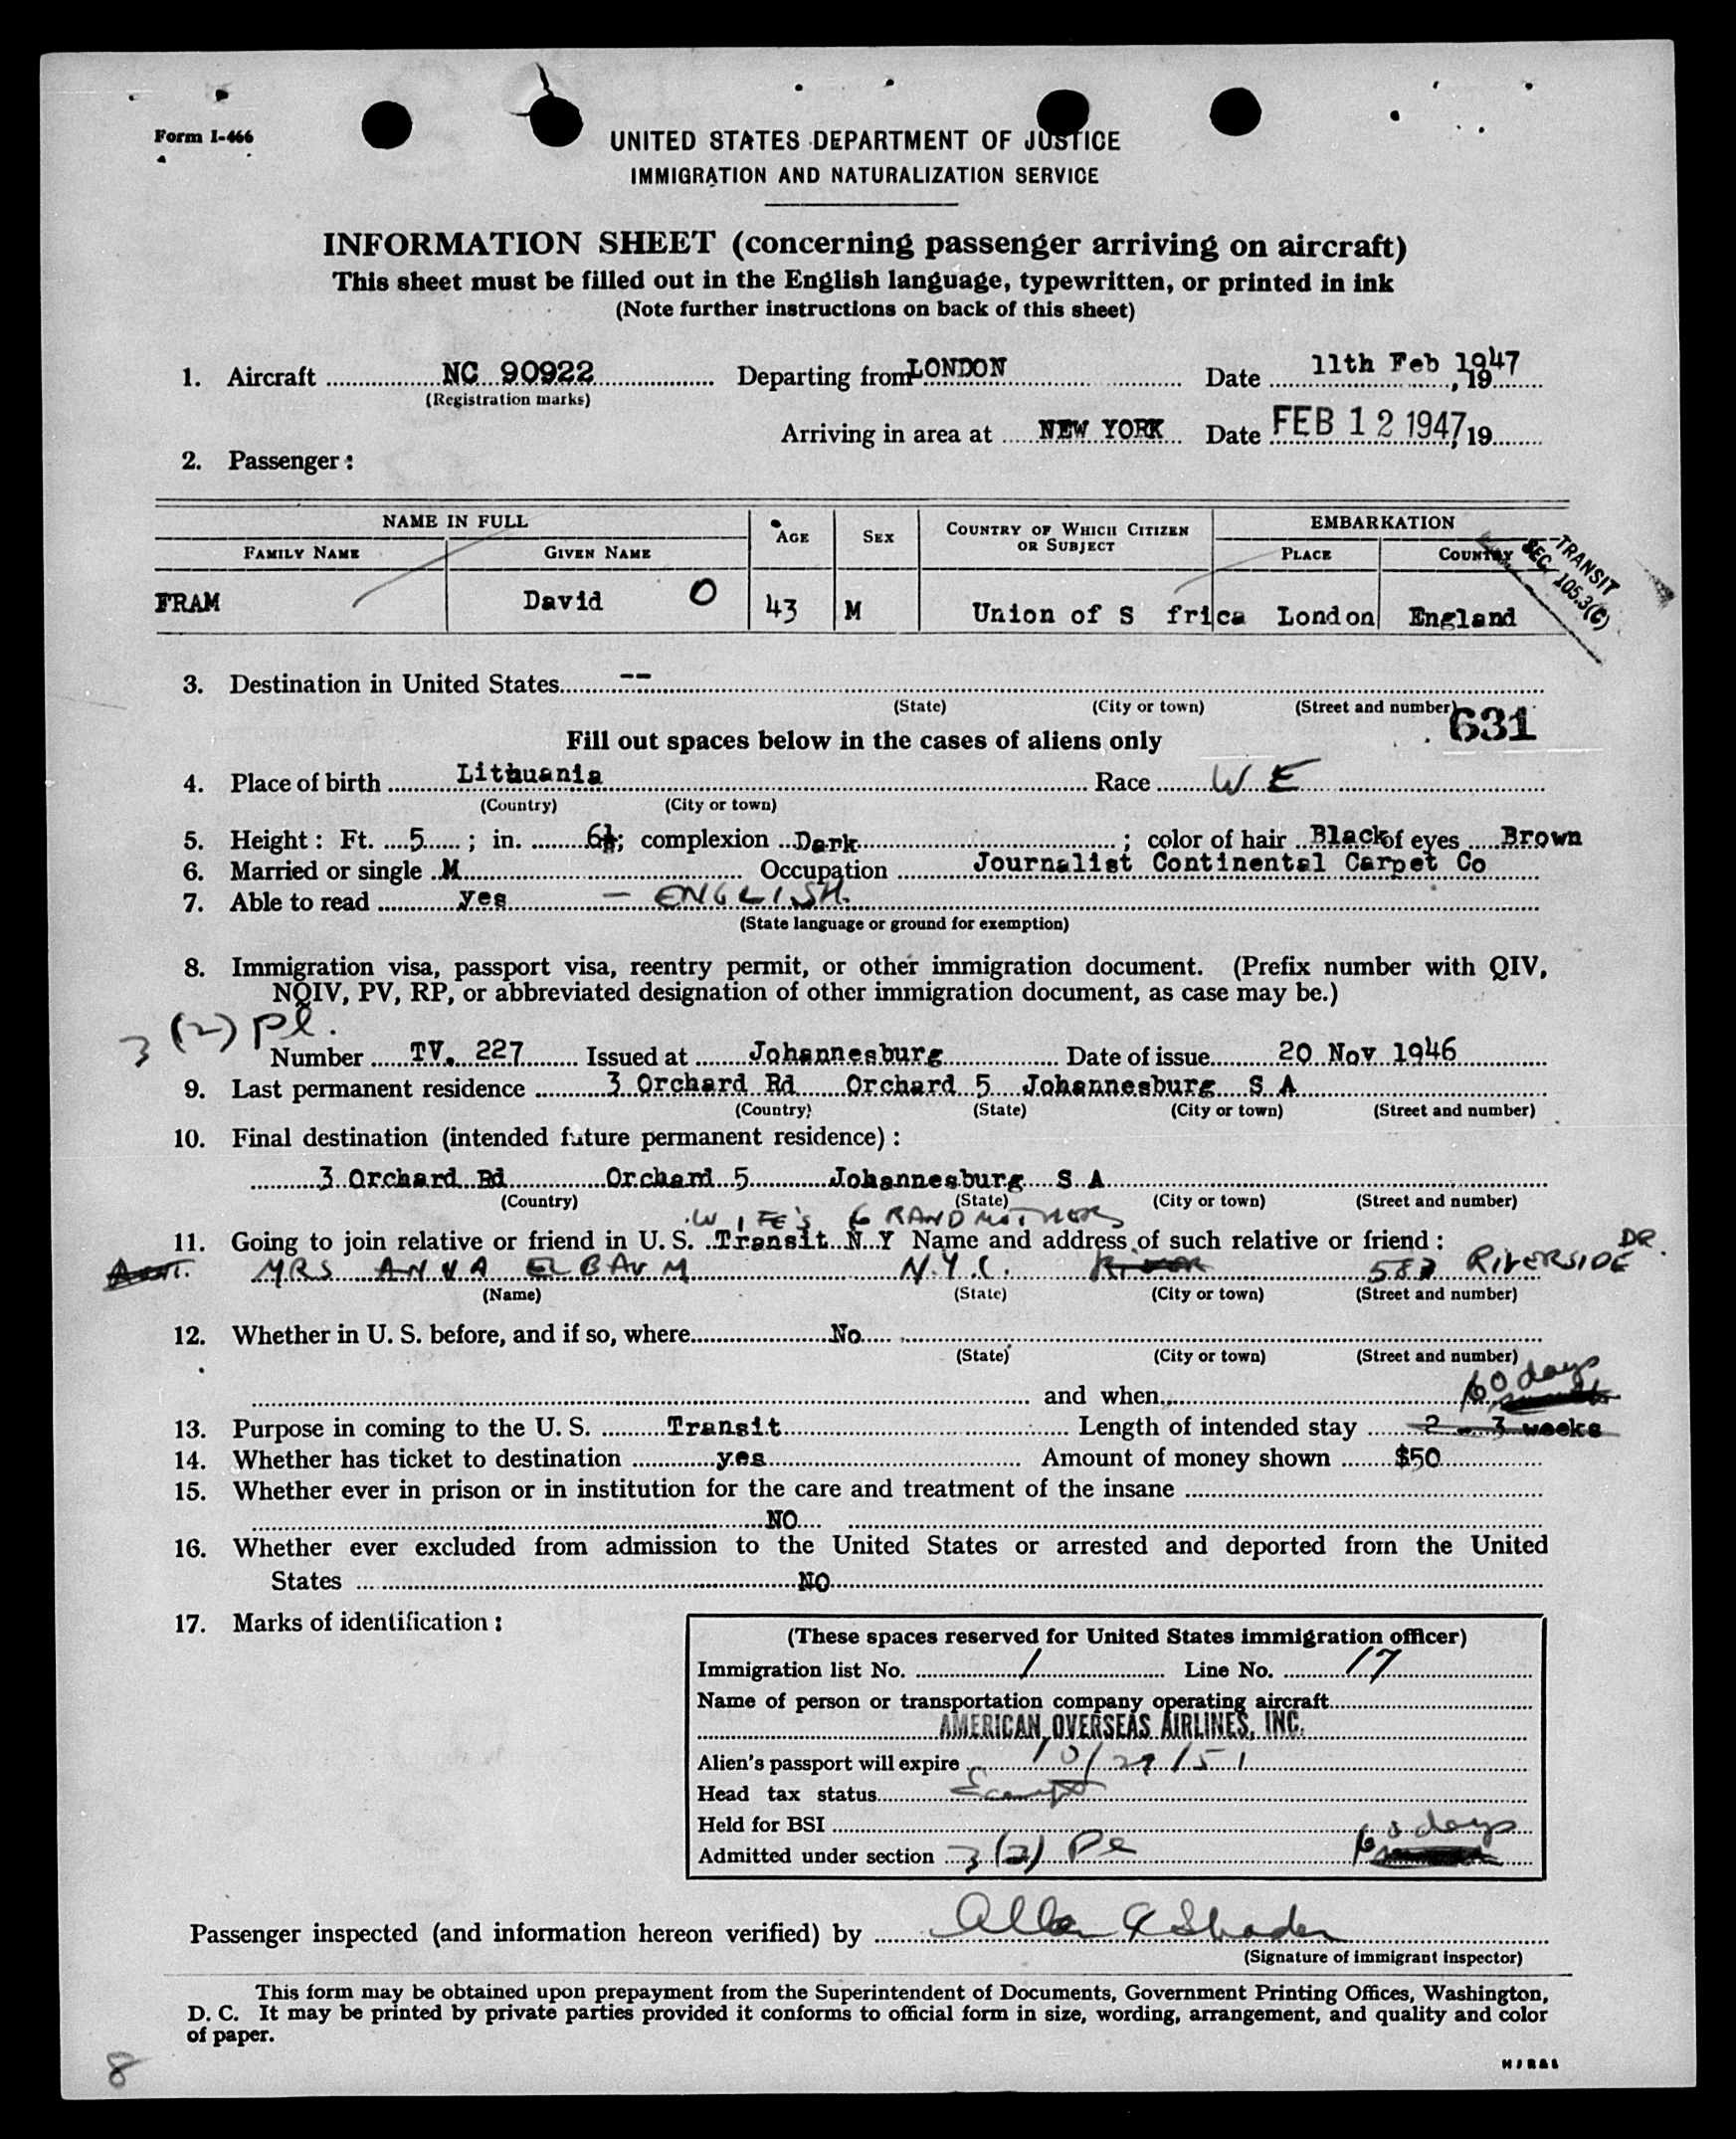 Form I-466
UNITED STATES DEPARTMENT OF JUSTICE
IMMIGRATION AND NATURALIZATION SERVICE
INFORMATION SHEET (concerning passenger arriving on aircraft)
This sheet must be filled out in the English language, typewritten, or printed in ink
(Note further instructions on back of this sheet)
1. Aircraft NC 90922 Departing from LONDON Date 11th Feb 1947, 19
(Registration marks)
Arriving in area at NEW YORK Date FEB 12 1947, 19
2. Passenger:
NAME IN FULL AGE SEX COUNTRY OF WHICH CITIZEN OR SUBJECT EMBARKATION
FAMILY NAME GIVEN NAME PLACE COUNTRY
TRANSIT
SEC. 105.3(C)
FRAM David O 43 M Union of S frica London England
3. Destination in United States --
(State) (City or town) (Street and number)
631
Fill out spaces below in the cases of aliens only
4. Place of birth Lithuania Race W E
(Country) (City or town)
5. Height: Ft. 5; in. 6½; complexion Dark; color of hair Black of eyes Brown
6. Married or single M Occupation Journalist Continental Carpet Co
7. Able to read yes - ENGLISH.
(State language or ground for exemption)
8. Immigration visa, passport visa, reentry permit, or other immigration document. (Prefix number with QIV,
NQIV, PV, RP, or abbreviated designation of other immigration document, as case may be.)
3 (2) Pl.
Number TV. 227 Issued at Johannesburg Date of issue 20 Nov 1946
9. Last permanent residence 3 Orchard Rd Orchard 5 Johannesburg S A
(Country) (State) (City or town) (Street and number)
10. Final destination (intended future permanent residence):
3 Orchard Rd Orchard 5 Johannesburg S A
(Country) (State) (City or town) (Street and number)
WIFE'S GRANDMOTHERS
11. Going to join relative or friend in U. S. Transit N Y Name and address of such relative or friend:
MRS ANNA ELBAUM N.Y.C. RIVER 587 RIVERSIDE DR.
(Name) (State) (City or town) (Street and number)
12. Whether in U. S. before, and if so, where No
(State) (City or town) (Street and number)
and when
60 days
13. Purpose in coming to the U. S. Transit Length of intended stay 2 - 3 weeks
14. Whether has ticket to destination yes Amount of money shown $50
15. Whether ever in prison or in institution for the care and treatment of the insane
NO
16. Whether ever excluded from admission to the United States or arrested and deported from the United
States NO
17. Marks of identification:
(These spaces reserved for United States immigration officer)
Immigration list No. 1 Line No. 17
Name of person or transportation company operating aircraft
AMERICAN OVERSEAS AIRLINES, INC.
Alien's passport will expire 10/29/51
Head tax status
Held for BSI
60 days
Admitted under section 3 (2) Pl
Passenger inspected (and information hereon verified) by
(Signature of immigrant inspector)
This form may be obtained upon prepayment from the Superintendent of Documents, Government Printing Offices, Washington,
D. C. It may be printed by private parties provided it conforms to official form in size, wording, arrangement, and quality and color
of paper.
8